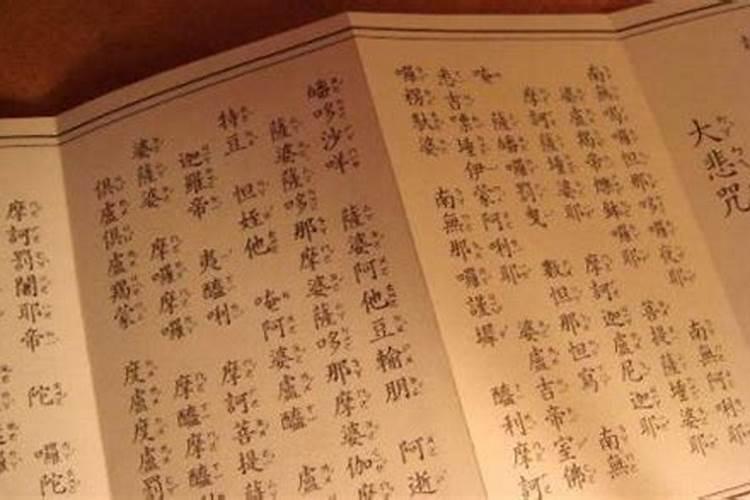 大悲咒
南無喝囉怛那哆囉夜耶 南無阿唎耶
婆盧羯帝爍缽囉耶 菩提薩埵婆耶
摩訶薩埵婆耶 摩訶迦盧尼迦耶
唵 薩皤囉罰曳 數怛那怛寫 南無
悉吉嘌埵伊蒙阿唎耶 婆盧吉帝室佛
囉楞馱婆 南無那囉謹墀 醯利摩訶
皤哆沙咩 薩婆阿他豆輸朋 阿逝
薩婆薩哆那摩婆薩哆那摩婆伽摩
特豆 怛姪他 唵阿婆盧醯 盧
迦羅帝 夷醯唎 摩訶菩提薩
婆薩婆 摩囉摩囉 摩醯摩醯
俱盧俱盧羯蒙 度盧度盧罰
摩訶罰闍耶帝 陀囉陀